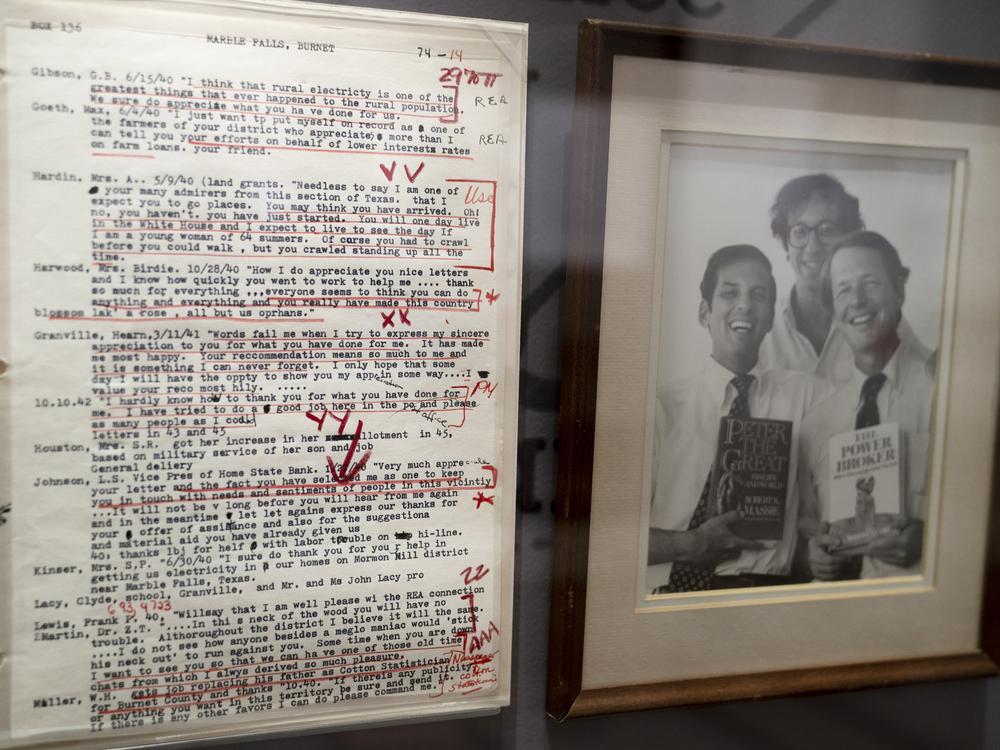 BOX 136
MARBLE FALLS, BURNET
74 - 14
Gibson, G.B. 6/15/40 "I think that rural electricty is one of the
greatest things that ever happened to the rural population.
We sure do appreciate what you ha ve done for us.
REA
Goeth, Max, 6/4/40 "I just want tp put myself on record as one of
the farmers of your district who appreciates more than I
can tell you your efforts on behalf of lower interest rates
on farm loans. your friend.
REA
Hardin, Mrs. A.. 5/9/40 (land grants. "Needless to say I am one of
your many admirers from this section of Texas. that I
expect you to go places. You may think you have arrived. Oh!
no, you haven't. you have just started. You will one day live
in the White House and I expect to live to see the day If
I am a young woman of 64 summers. Of curse you had to crawl
before you could walk , but you crawled standing up all the
time.
Use
Harwood, Mrs. Birdie. 10/28/40 "How I do appreciate you nice letters
and I know how quickly you want to work to help me .... thank
so much for everything ,..everyone seems to think you can do
anything and everything and you really have made this country
blossom lak' a rose , all but us oprhans."
Granville, Hearn,3/11/41 "Words fail me when I try to express my sincere
appreciation to you for what you have done for me. It has made
me most happy. Your reccommendation means so much to me and
it is something I can never forget. I only hope that some
day I will have the oppty to show you my appcin some way....I
value your reco most hily. ......
10.10.42 "I hardly know how to thank you for what you have done for
me. I have tried to do a good job here in the po and please
as many people as I could
letters in 43 and 45
PM
office
Houston, Mrs. S.R. got her increase in her allotment in 45,
based on military service of her son and job
General deliery
Johnson, L.S. Vice Pres of Home State Bank. "Very much appreciate
your letter and the fact you have selected me as one to keep
you in touch with needs and sentiments of people in this vicintiy
...It will not be v long before you will hear from me again
and in the meantime let let agains express our thanks for
your offer of assitance and also for the suggestiona
and material aid you have already given us
40; thanks lbj for help with labor trouble on hi-line.
Kinser, Mrs. S,P. "6/30/40 "I sure do thank you for you r help in
getting us electricity in our homes on Mormon Mill district
near Marble Falls, Texas.
Lacy, Clyde, school, Granville, and Mr. and Ms John Lacy pro
22
Lewis, Frank P. 40, "Willsay that I am well please wi the REA connection
ZMartin, Dr. Z.T. ....In thi s neck of the wood you will have no
trouble. Althoroughout the district I believe it will the same.
....I do not see how anyone besides a meglo maniac would 'stick
his neck out' to run against you. Some time when you are down
I want to see you so that we can ha ve one of those old time
chats from which I alwys derived so much pleasure.
AAA
Miller, W.H. gets job replacing his father as Cotton Statistician
for Burnet County and thanks "10/40. "If there's any publicity
or anything you want in this territory be sure and send it.
If there is any other favors I can do please command me."
cotton
PETER
THE
GREAT
HIS LIFE
AND WORLD
ROBERT K.
MASSIE
THE
POWER
BROKER